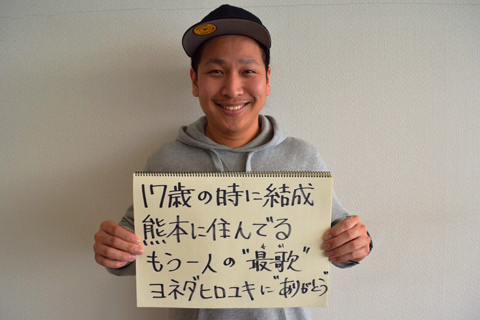 17歳の時に結成
熊本に住んでる
もう一人の"最歌"
ヨネダヒロユキに"ありがとう"